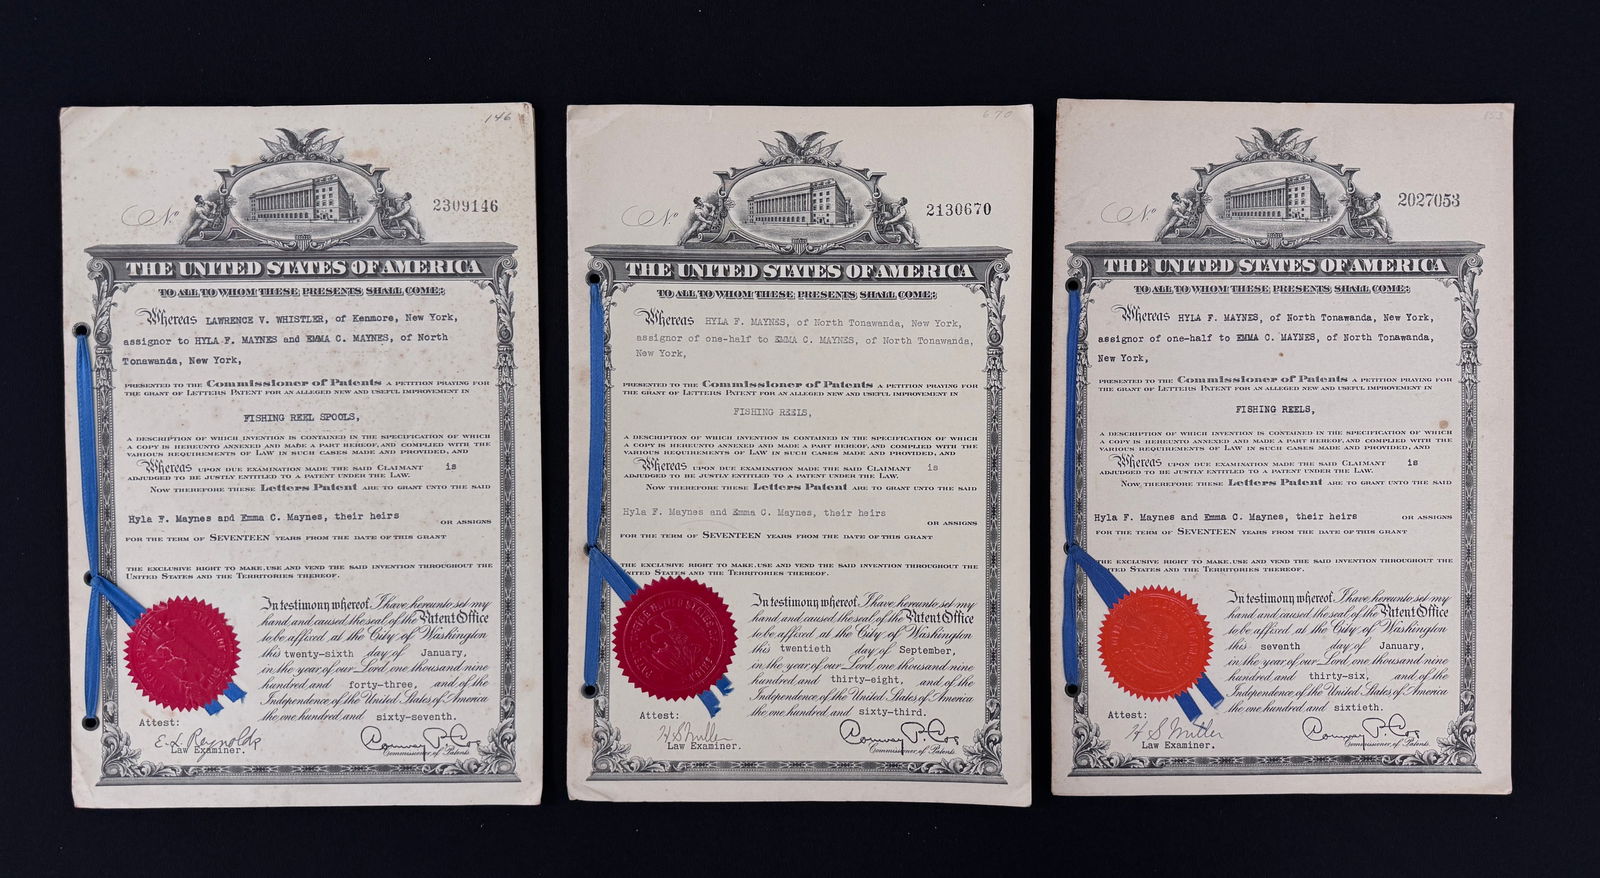 146
No
2309146
THE UNITED STATES OF AMERICA
TO ALL TO WHOM THESE PRESENTS SHALL COME:
Whereas LAWRENCE V. WHISTLER, of Kenmore, New York,
assignor to HYLA F. MAYNES and EMMA C. MAYNES, of North
Tonawanda, New York,
PRESENTED TO THE Commissioner of Patents A PETITION PRAYING FOR
THE GRANT OF LETTERS PATENT FOR AN ALLEGED NEW AND USEFUL IMPROVEMENT IN
FISHING REEL SPOOLS,
A DESCRIPTION OF WHICH INVENTION IS CONTAINED IN THE SPECIFICATION OF WHICH
A COPY IS HEREUNTO ANNEXED AND MADE A PART HEREOF, AND COMPLIED WITH THE
VARIOUS REQUIREMENTS OF LAW IN SUCH CASES MADE AND PROVIDED, AND
Whereas UPON DUE EXAMINATION MADE THE SAID CLAIMANT is
ADJUDGED TO BE JUSTLY ENTITLED TO A PATENT UNDER THE LAW.
NOW THEREFORE THESE Letters Patent ARE TO GRANT UNTO THE SAID
Hyla F. Maynes and Emma C. Maynes, their heirs OR ASSIGNS
FOR THE TERM OF SEVENTEEN YEARS FROM THE DATE OF THIS GRANT
THE EXCLUSIVE RIGHT TO MAKE, USE AND VEND THE SAID INVENTION THROUGHOUT THE
UNITED STATES AND THE TERRITORIES THEREOF.
In testimony whereof, I have hereunto set my
hand and caused the seal of the Patent Office
to be affixed at the City of Washington
this twenty-sixth day of January,
in the year of our Lord one thousand nine
hundred and forty-three, and of the
Independence of the United States of America
the one hundred and sixty-seventh.
Attest:
E. L. Reynolds
Law Examiner.
Conway P. Coe
Commissioner of Patents.
670
No
2130670
THE UNITED STATES OF AMERICA
TO ALL TO WHOM THESE PRESENTS SHALL COME:
Whereas HYLA F. MAYNES, of North Tonawanda, New York,
assignor of one-half to EMMA C. MAYNES, of North Tonawanda,
New York,
PRESENTED TO THE Commissioner of Patents A PETITION PRAYING FOR
THE GRANT OF LETTERS PATENT FOR AN ALLEGED NEW AND USEFUL IMPROVEMENT IN
FISHING REELS,
A DESCRIPTION OF WHICH INVENTION IS CONTAINED IN THE SPECIFICATION OF WHICH
A COPY IS HEREUNTO ANNEXED AND MADE A PART HEREOF, AND COMPLIED WITH THE
VARIOUS REQUIREMENTS OF LAW IN SUCH CASES MADE AND PROVIDED, AND
Whereas UPON DUE EXAMINATION MADE THE SAID CLAIMANT is
ADJUDGED TO BE JUSTLY ENTITLED TO A PATENT UNDER THE LAW.
NOW THEREFORE THESE Letters Patent ARE TO GRANT UNTO THE SAID
Hyla F. Maynes and Emma C. Maynes, their heirs
OR ASSIGNS
FOR THE TERM OF SEVENTEEN YEARS FROM THE DATE OF THIS GRANT
THE EXCLUSIVE RIGHT TO MAKE, USE AND VEND THE SAID INVENTION THROUGHOUT THE
UNITED STATES AND THE TERRITORIES THEREOF.
In testimony whereof, I have hereunto set my
hand and caused the seal of the Patent Office
to be affixed at the City of Washington
this twentieth day of September,
in the year of our Lord one thousand nine
hundred and thirty-eight, and of the
Independence of the United States of America
the one hundred and sixty-third.
Attest:
H S Miller
Law Examiner.
Conway P. Coe
Commissioner of Patents.
053
No
2027053
THE UNITED STATES OF AMERICA
TO ALL TO WHOM THESE PRESENTS SHALL COME:
Whereas HYLA F. MAYNES, of North Tonawanda, New York,
assignor of one-half to EMMA C. MAYNES, of North Tonawanda,
New York,
PRESENTED TO THE Commissioner of Patents A PETITION PRAYING FOR
THE GRANT OF LETTERS PATENT FOR AN ALLEGED NEW AND USEFUL IMPROVEMENT IN
FISHING REELS,
A DESCRIPTION OF WHICH INVENTION IS CONTAINED IN THE SPECIFICATION OF WHICH
A COPY IS HEREUNTO ANNEXED AND MADE A PART HEREOF, AND COMPLIED WITH THE
VARIOUS REQUIREMENTS OF LAW IN SUCH CASES MADE AND PROVIDED, AND
Whereas UPON DUE EXAMINATION MADE THE SAID CLAIMANT is
ADJUDGED TO BE JUSTLY ENTITLED TO A PATENT UNDER THE LAW.
NOW THEREFORE THESE Letters Patent ARE TO GRANT UNTO THE SAID
Hyla F. Maynes and Emma C. Maynes, their heirs OR ASSIGNS
FOR THE TERM OF SEVENTEEN YEARS FROM THE DATE OF THIS GRANT
THE EXCLUSIVE RIGHT TO MAKE, USE AND VEND THE SAID INVENTION THROUGHOUT THE
UNITED STATES AND THE TERRITORIES THEREOF.
In testimony whereof, I have hereunto set my
hand and caused the seal of the Patent Office
to be affixed at the City of Washington
this seventh day of January,
in the year of our Lord one thousand nine
hundred and thirty-six, and of the
Independence of the United States of America
the one hundred and sixtieth.
Attest:
H S Miller
Law Examiner.
Conway P. Coe
Commissioner of Patents.